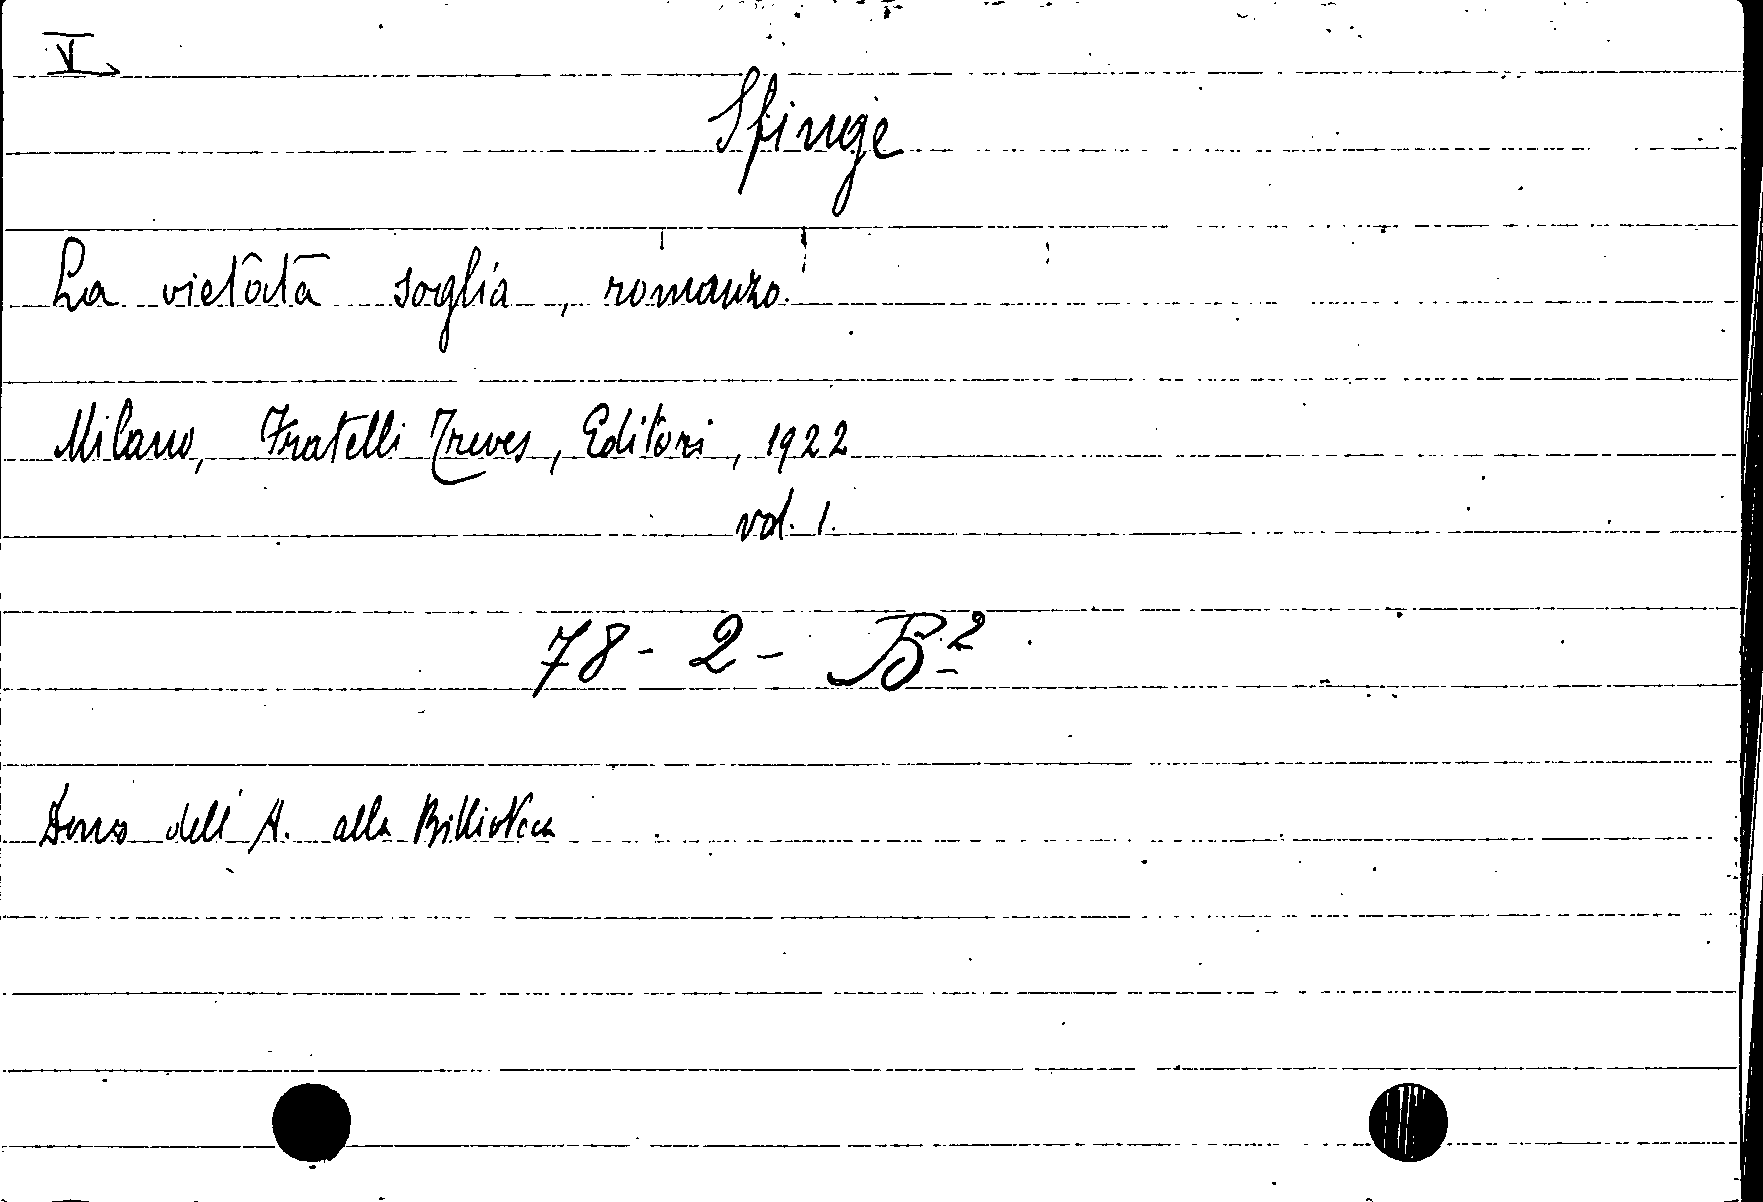 V
Sfinge
La vietata soglia, romanzo.
Milano, Fratelli Treves, Editori, 1922
vol. 1.
78 - 2 - B²
Dono dell'A. alla Biblioteca